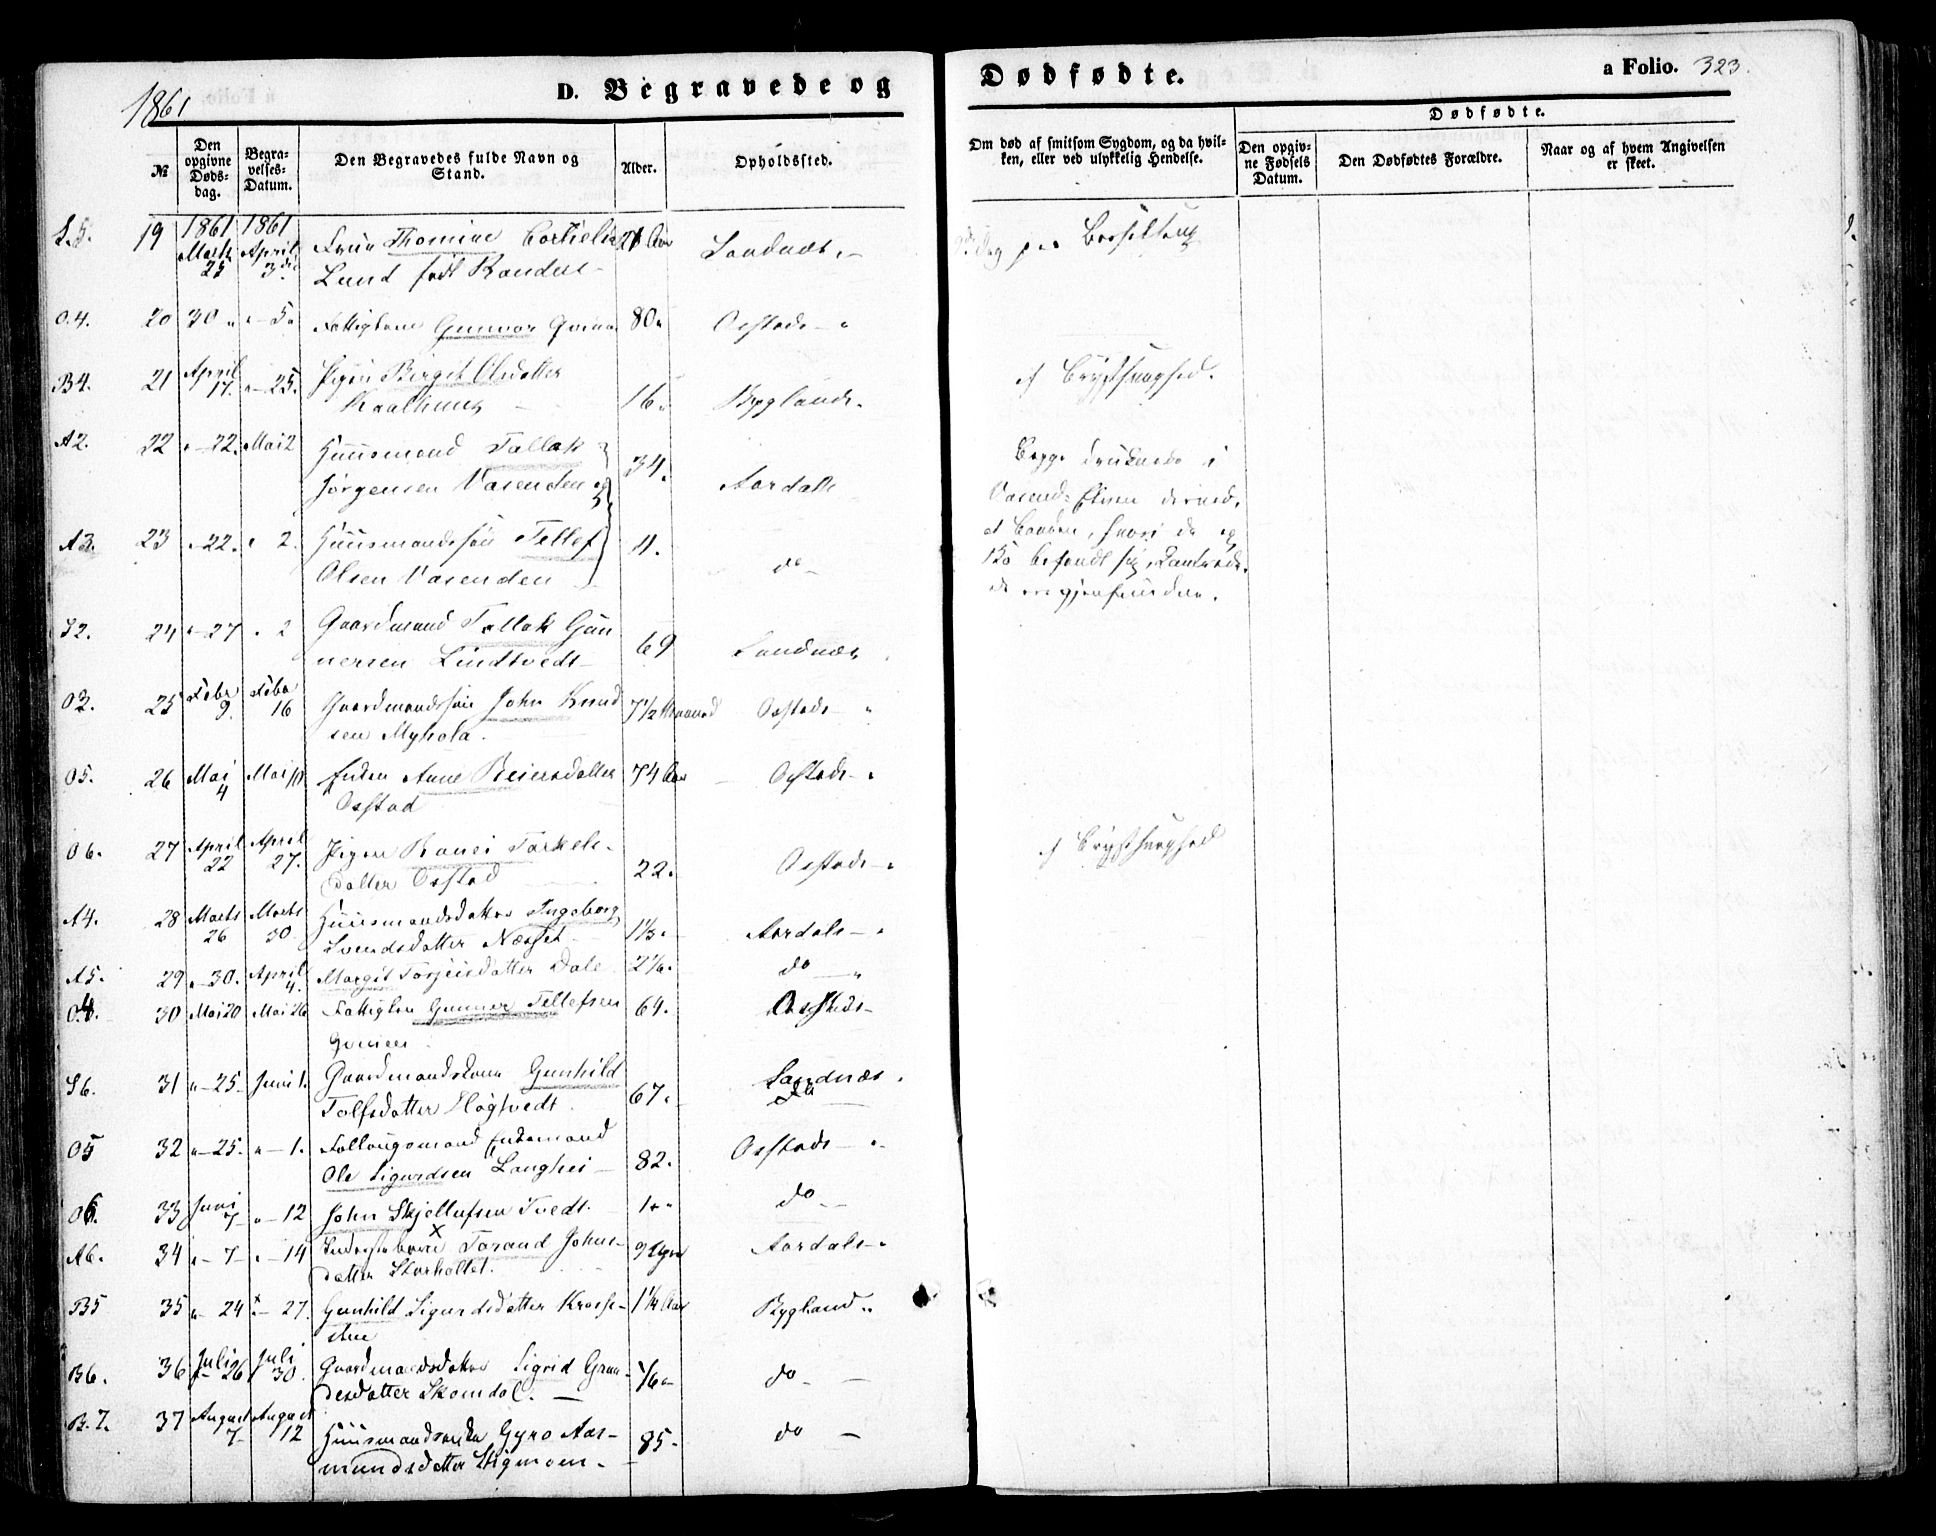 1861
D. Begravede og Dødfødte.
a Folio. 323.
№
Den opgivne Døds-dag.
Begra-velses-Datum.
Den Begravedes fulde Navn og Stand.
Alder.
Opholdssted.
Om død af smitsom Sygdom, og da hvil-ken, eller ved ulykkelig Hendelse.
Dødfødte.
Den opgiv-ne Fødsels Datum.
Den Dødfødtes Forældre.
Naar og af hvem Angivelsen er skeet.
S.5. 19 1861 Marts 25 1861 April 3die Frue Thomine Cornelia
Lund født Randul Sandnæs
O.4. 20 30 " " 5 Fattiglem Gunvor 80 Ostads
B4. 21 April 17. " 25. Pigen Birget Olsdatter
16 Byglands. af Brystsvaghed.
A2. 22 " 22. Mai 2 Huusmand Tallak
Jørgensen Vasenden og 34. Aardals
Begge druknede i
Vasend-Elven
A3. 23 " 22. " 2. Huusmandssøn Tellef
Olsen Vasenden 4. do
Baaden, hvori de og
befandt sig,
S2. 24 " 27 " 2 Gaardmand Tallak Gun
nersen Lindtvedt 69 Sandnæs
O3. 25 Febr 9. Febr 16 Gaardmandssøn John Knud
sen Myhola. 7½ Maaned Ostads "
O5. 26 Mai 4 Mai Enken Anne Reiersdatter
Ostad 74 Aar Ostads "
O6. 27 April 22 April 27. Pigen Ranei Tarkels-
datter Ostad 22. Ostads " af Brystsvaghed
A4. 28 Marts 26 Marts 30 Huusmandsdatter Ingeborg
Svendsdatter Næsset 1⅓. Aardals "
A5. 29 " 30. April 4. Margit Torjeisdatter Dale 2⅙. do "
O.4. 30 Mai 20 Mai 26 Fattiglem Gunner Tellefsen
64. Ostads
S6. 31 " 25 Juni 1. Gaardmandskone Gunhild
Tolfsdatter Høgtvedt. 67. Sandnæs.
O5 32 " 25. " 1. Follaugsmand Enkemand
Ole Sigurdsen Langhei 82. Ostads "
O6. 33 Juni 7 " 12 John Skjellufsen Tvedt. 1 " do
A6. 34 " 7 " 14 Tarand Johns-
datter Storholtet. 9 Aardals
B5 35 " 24 " 27. Gunhild Sigurdsdatter Krosse-
stue 1¼ Aar Bygland "
B6. 36 Juli 26 Juli 30. Gaardmandsdatter Sigrid Grun-
desdatter Skomdal. do
B.7. 37 August 7 August 12 Huusmandsenke Gyro Aas-
mundsdatter 85 do